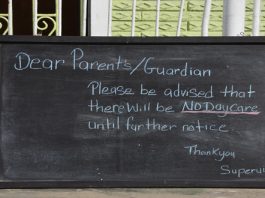 Dear Parents/Guardian
Please be advised that
there will be NO Daycare
until further notice.
Thankyou